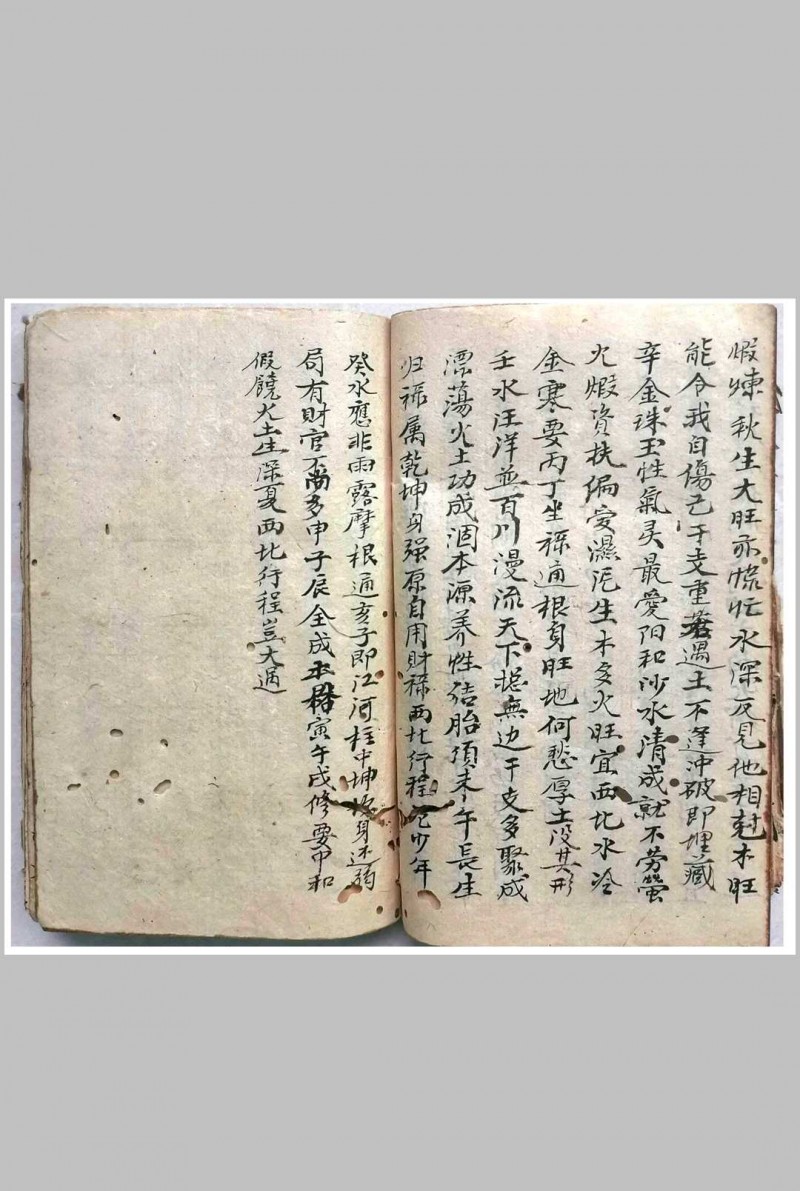 煆煉秋生大旺亦慌忙水深反見他相尅木旺
能令我自傷己干支重若遇土不逢冲破即埋藏
辛金珠玉性氣灵最愛阳和沙水清成就不劳螢
火煆資扶偏爱濕泥生木多火旺宜西北水冷
金寒要丙丁坐禄通根身旺地何愁厚土没其形
壬水汪洋並百川漫流天下揔無边干支多聚成
漂蕩火土功成涸本源养性结胎須未午長生
归禄属乾坤身强原自用財禄西北行程厄少年
癸水應非雨露摩根通亥子即江河柱中坤坎身还弱
局有財官不尚多申子辰全成本格寅午戌修要中和
假饒火土生深夏西北行程豈大過